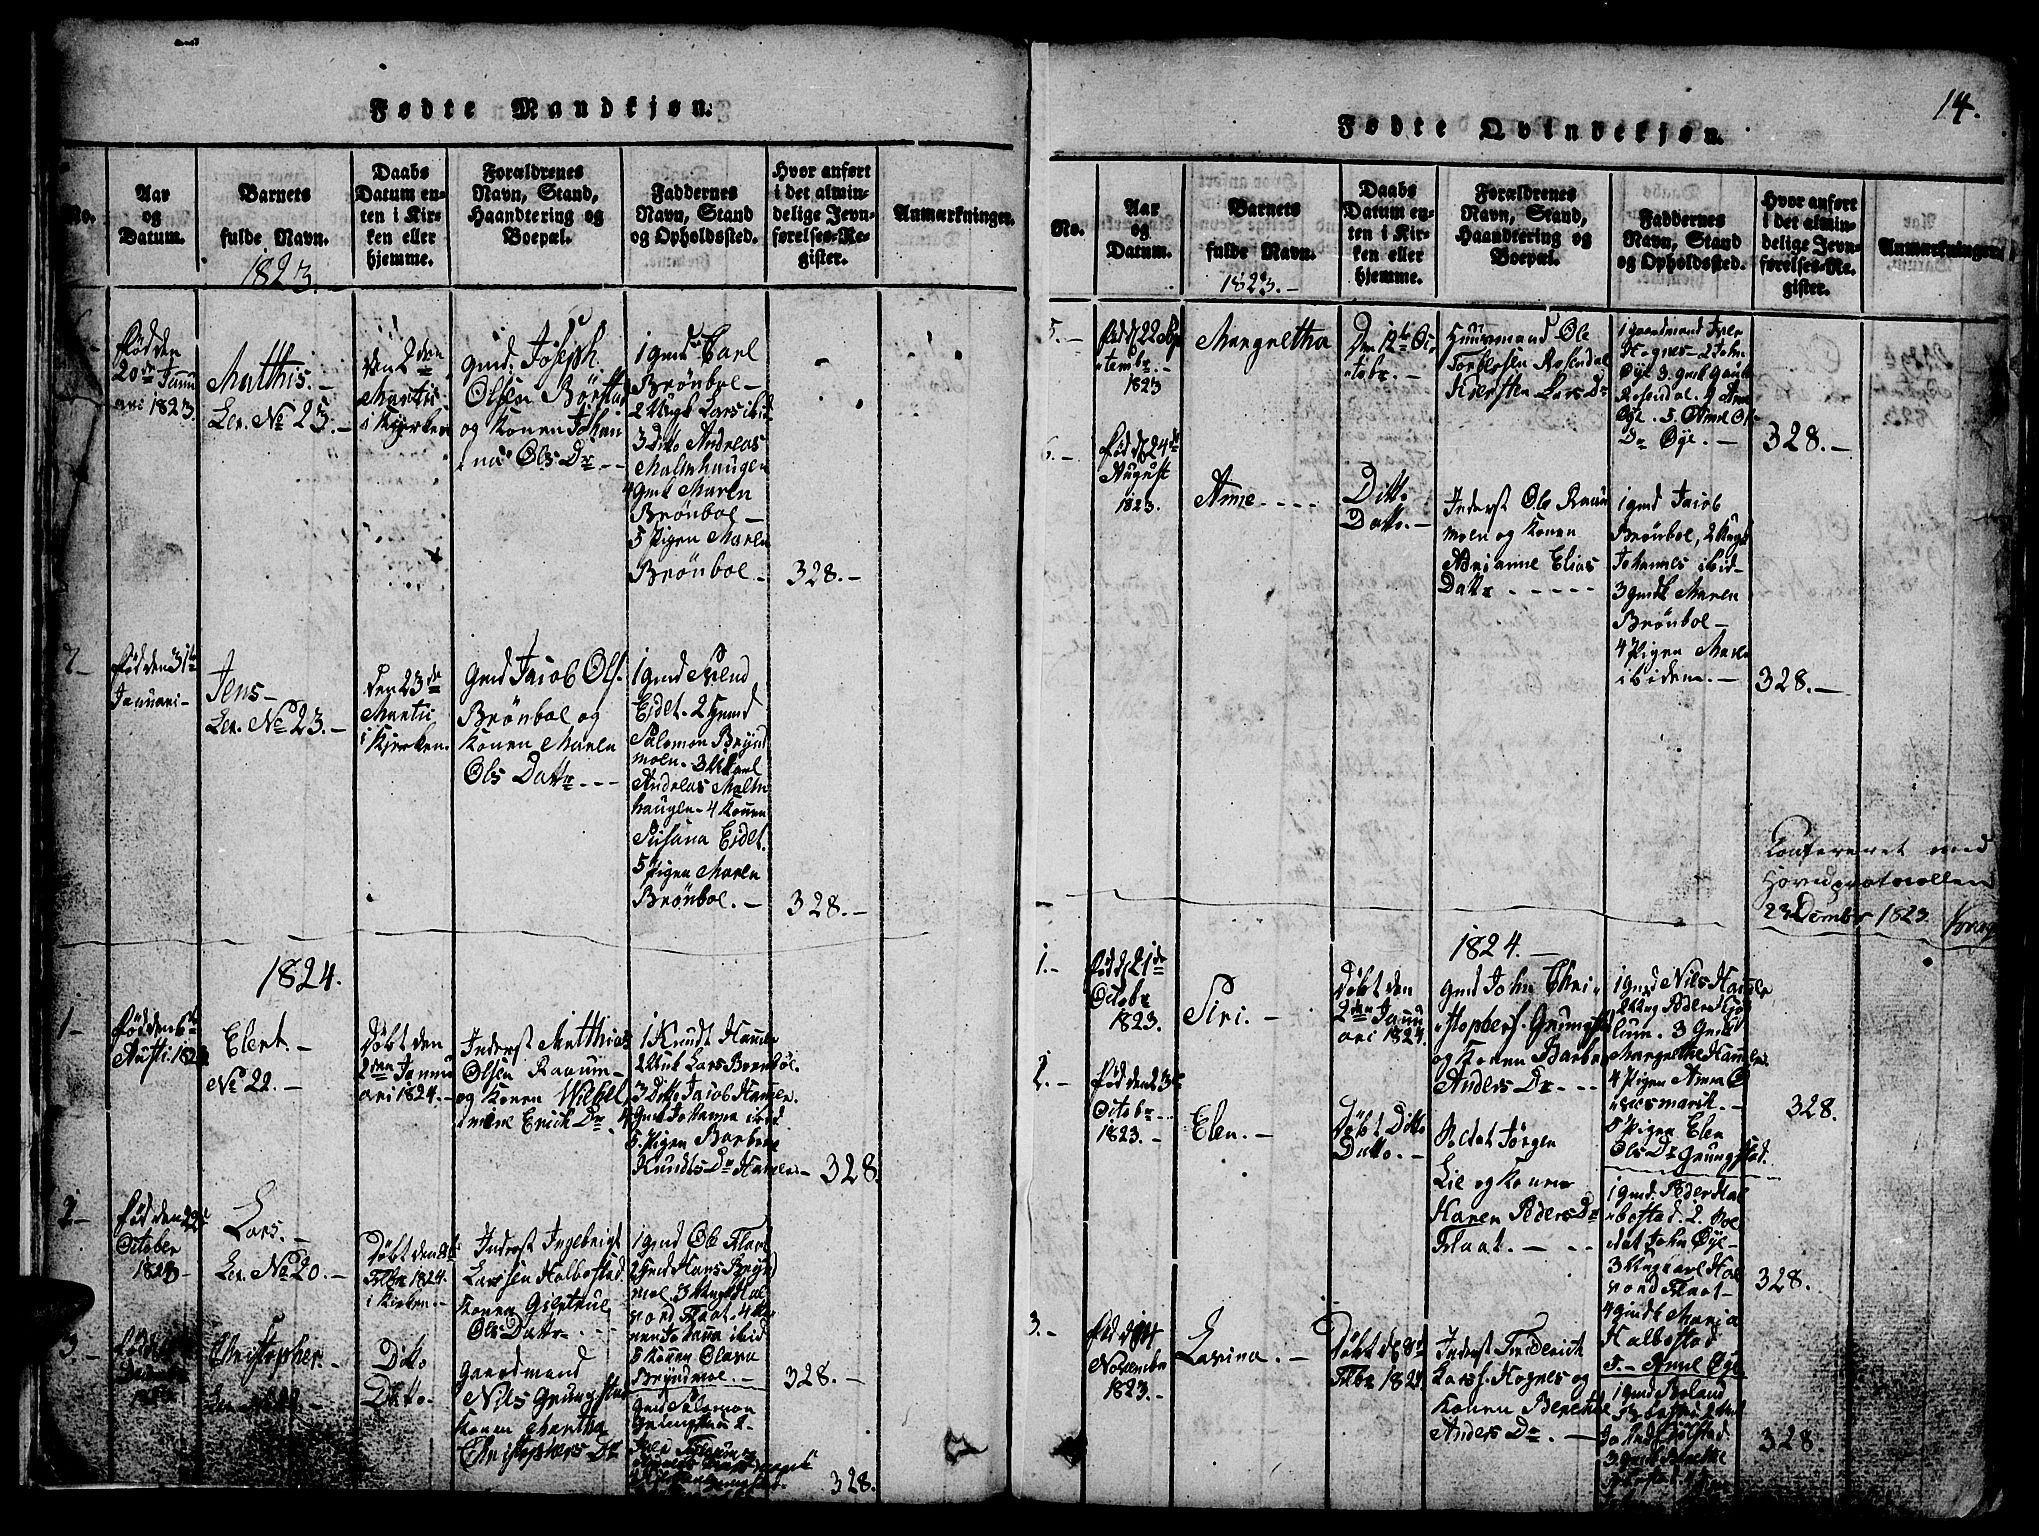 14.
Fødte Mandkjøn.
No.
Aar
og
Datum.
Barnets
fulde Navn.
1823.
Daabs
Datum en-
ten i Kir-
ken eller
hjemme.
Forældrenes
Navn, Stand,
Haandtering og
Boepæl.
Faddernes
Navn, Stand
og Opholdssted.
Hvor anført
i det almin-
delige Jevn-
førelses-Re-
gister.
Anmærkninger.
født den
20de Janu
ari 1823.
Matthis. –
Lev. No 25. –
den 2den
Martii
i Kjerken
gmd. Joseph
Olsen Börstad
og Konen Johan
na Ols Dr. – –
1 gmd Carl
Brönboe –
2 Ungk Lars ibid.
3 Ditto Andreas
Malmhaugen
4 gmk Maren
Brönboe –
5 Pigen Maren
Brönboe. –
328. –
2 –
født den 31te
Januari –
Jens –
Lev. No 23. –
den 23de
Martii
i Kjerken.
gmd Jacob Ols.
Brönboe og
Konen Maren
Ols Dattr. – – –
1 gmd Svend
Eidet. 2 gmd
Salomon Brynd
moen. 3
Andreas Malm
haugen. 4 Konen
Susana Eidet.
5 Pigen Maren
Brönboe. –
328. –
1824.
1 –
født den 6te
Elert. –
No 22. –
Döbt den
2den Janu
ari 1824. –
Inderst Matthias
Olsen Raaum –
og Konen Wibel
Erich Dr.
1 Knudt Hammer
2 Unk Lars Brenböl.
3 Ditto Jacob Hammer.
4 gmd Johanna ibid.
5. Pigen Barbera
Knudts Dr Hammer
328.
2 –
født den 22de
October
1823
Lars. –
Lev. No 20. –
Döbt den 8de
Febr 1824.
i Kirken. –
Inderst Ingebrigt
Larssen Halbostad.
Konen Giertrud
Ols Dattr. – –
1 gmd Ole Flaat
2 gmd Hans Brynd
moe. 3 Ungk Hal
vord Flaat. 4 Ko
nen Johanna ibid
5 Konen Olava
Bryndmoe. –
328. –
3. –
Christopher –
Ditto
Datto.
Gaardmand
Nils Grungstad
Konen Martha
Christophers Dr
gmd Salomon
Grungstad 2.
328.
Fødte Qvindekjøn.
No.
Aar
og
Datum.
Barnets
fulde Navn.
1823. –
Daabs
Datum en-
ten i Kir-
ken eller
hjemme.
Forældrenes
Navn, Stand,
Haandtering og
Boepæl.
Faddernes
Navn, Stand
og Opholdssted.
Hvor anført
i det almin-
delige Jevn-
førelses-Re-
gister.
Anmærkninger.
5. –
født d 22 Sep
tembr. –
1823
Margretha
Den 12te Oc
tobr. –
Huusmand Ole
Torbersen Rosendal
Kiersten Lars Dr
1 gaardmand Iver
Hognes – 2 John
Øye 3. gmk
Rosendal. 4 Anne
Øye. 5. Anne Ols
Dr Øye. –
328. –
6. –
født d 24de
August
1823.
Anne – – – –
Ditto
Datto. –
Inderst Ole Raaum
moen og Konen
Adrianne Elias
Dattr. – – – – –
1 gmd Jacob
Brönboe, 2 Ungk
Johannes ibid –
3 gmk Maren
Brönboe –
4 Pigen Maren
ibidem. –
328. –
Confereret med
Hovedprotocollen
23 Decembr 1823.
1824. –
1. –
født d 21de
Octobr
1823.
Siri. –
Döbt den
2den Janu
ari 1824.
gmd John Chri
stophers. Grungstad
og Konen Barbra
Anders Dr. – – –
1 gmd Nils Hammer
2 Ung Peder Fjos
lum. 3 gmk
Margrethe Hammer.
4 Pigen Anna O
vermark. –
5 Pigen Elen
Ols Dr Grungstad.
328.
2. –
født den 23de
Octobr. – –
1823. –
Elen. –
Döbt Ditto
Datto. –
Soldat Jörgen
Lie og Konen
Haren Peders Dr
Flaat. – – –
1 gmd. Peder Hal
bostad. 2. Sol
dat John Øye –
3 Ungkarl Hal
vord Flaat –
4 gmdk Maria
Halbostad
5. – Anne Øye
328. –
3. –
født d 14
Novembr
1823. –
Lavina. –
Döbt d 8de
Febr 1824
Inderst Friderich
Larss. Hognes og
Konen Berethe
Anders Dr. –
1 gmd Roland
328.